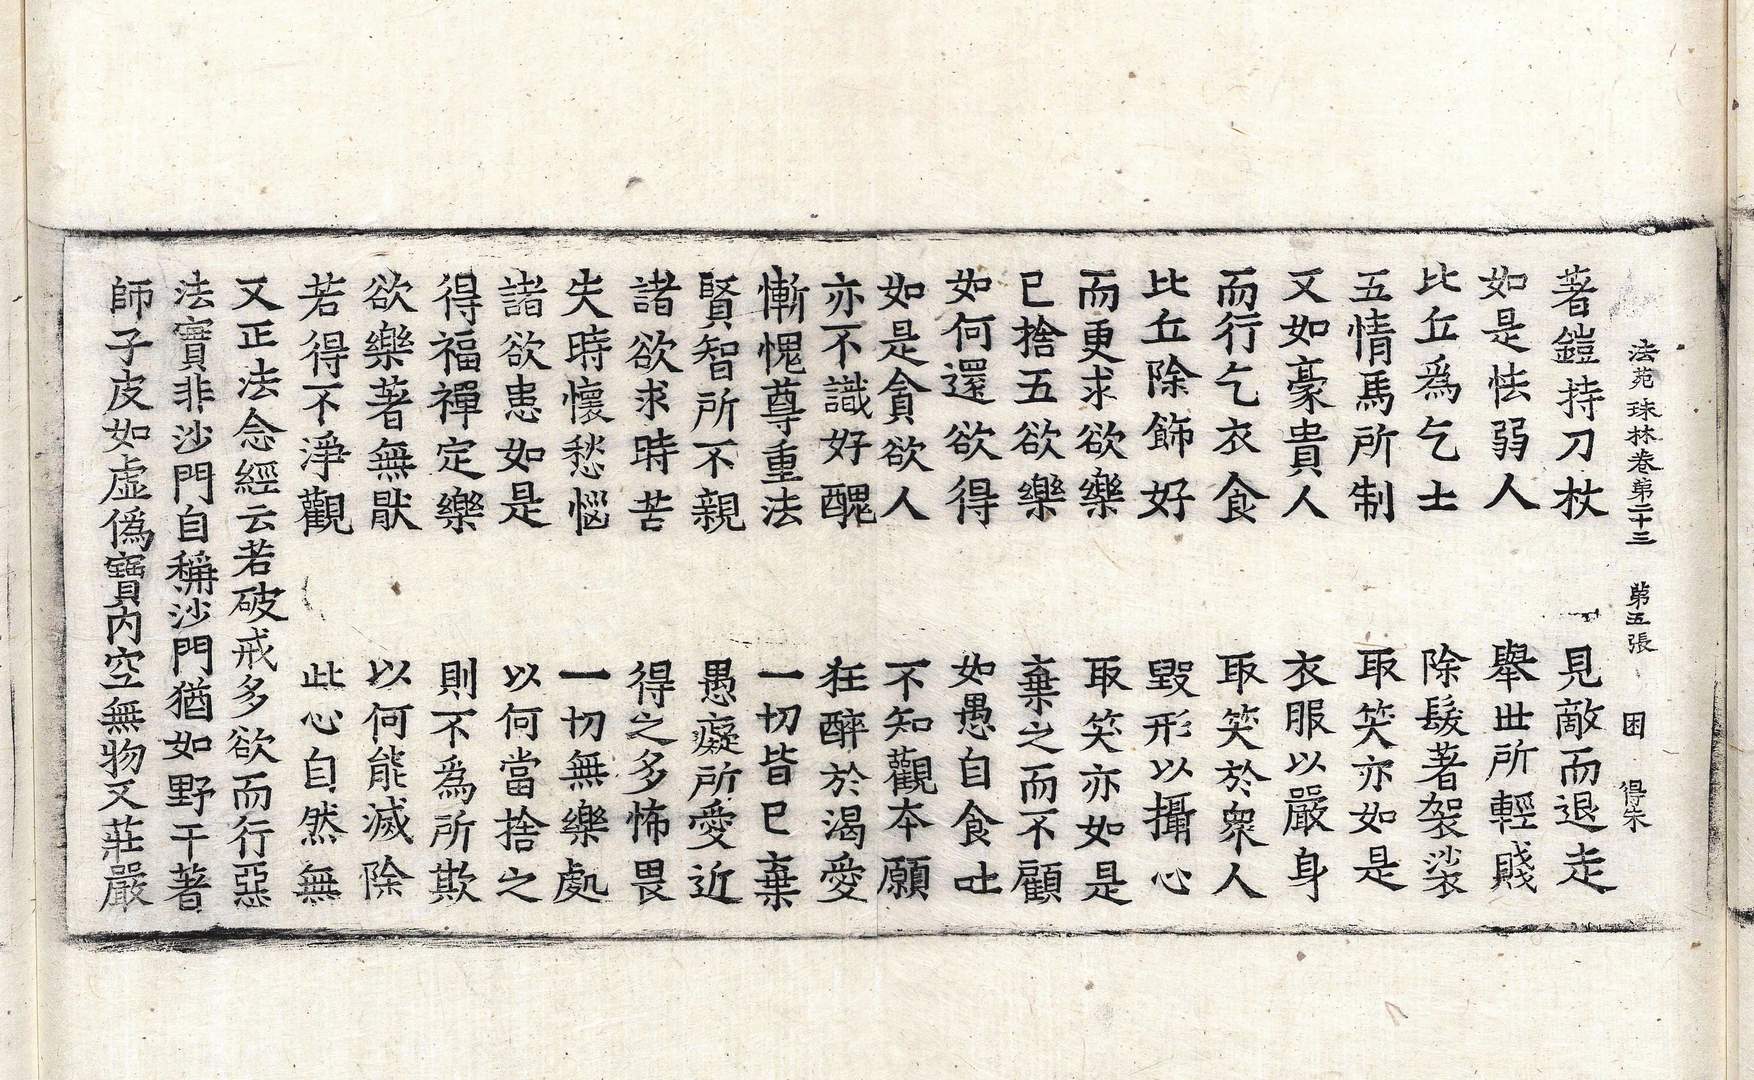 法苑珠林卷第二十三 第五張 困 得宋
著鎧持刀杖 見敵而退走
如是怯弱人 舉世所輕賤
比丘爲乞士 除髮著袈裟
五情馬所制 取笑亦如是
又如豪貴人 衣服以嚴身
而行乞衣食 取笑於衆人
比丘除飾好 毀形以攝心
而更求欲樂 取笑亦如是
已捨五欲樂 棄之而不顧
如何還欲得 如愚自食吐
如是貪欲人 不知觀本願
亦不識好醜 狂醉於渴愛
慚愧尊重法 一切皆已棄
賢智所不親 愚癡所愛近
諸欲求時苦 得之多怖畏
失時懷愁惱 一切無樂處
諸欲患如是 以何當捨之
得福禪定樂 則不為所欺
欲樂著無厭 以何能滅除
若得不淨觀 此心自然無
又正法念經云若破戒多欲而行惡
法實非沙門自稱沙門猶如野干著
師子皮如虛僞寶內空無物又莊嚴